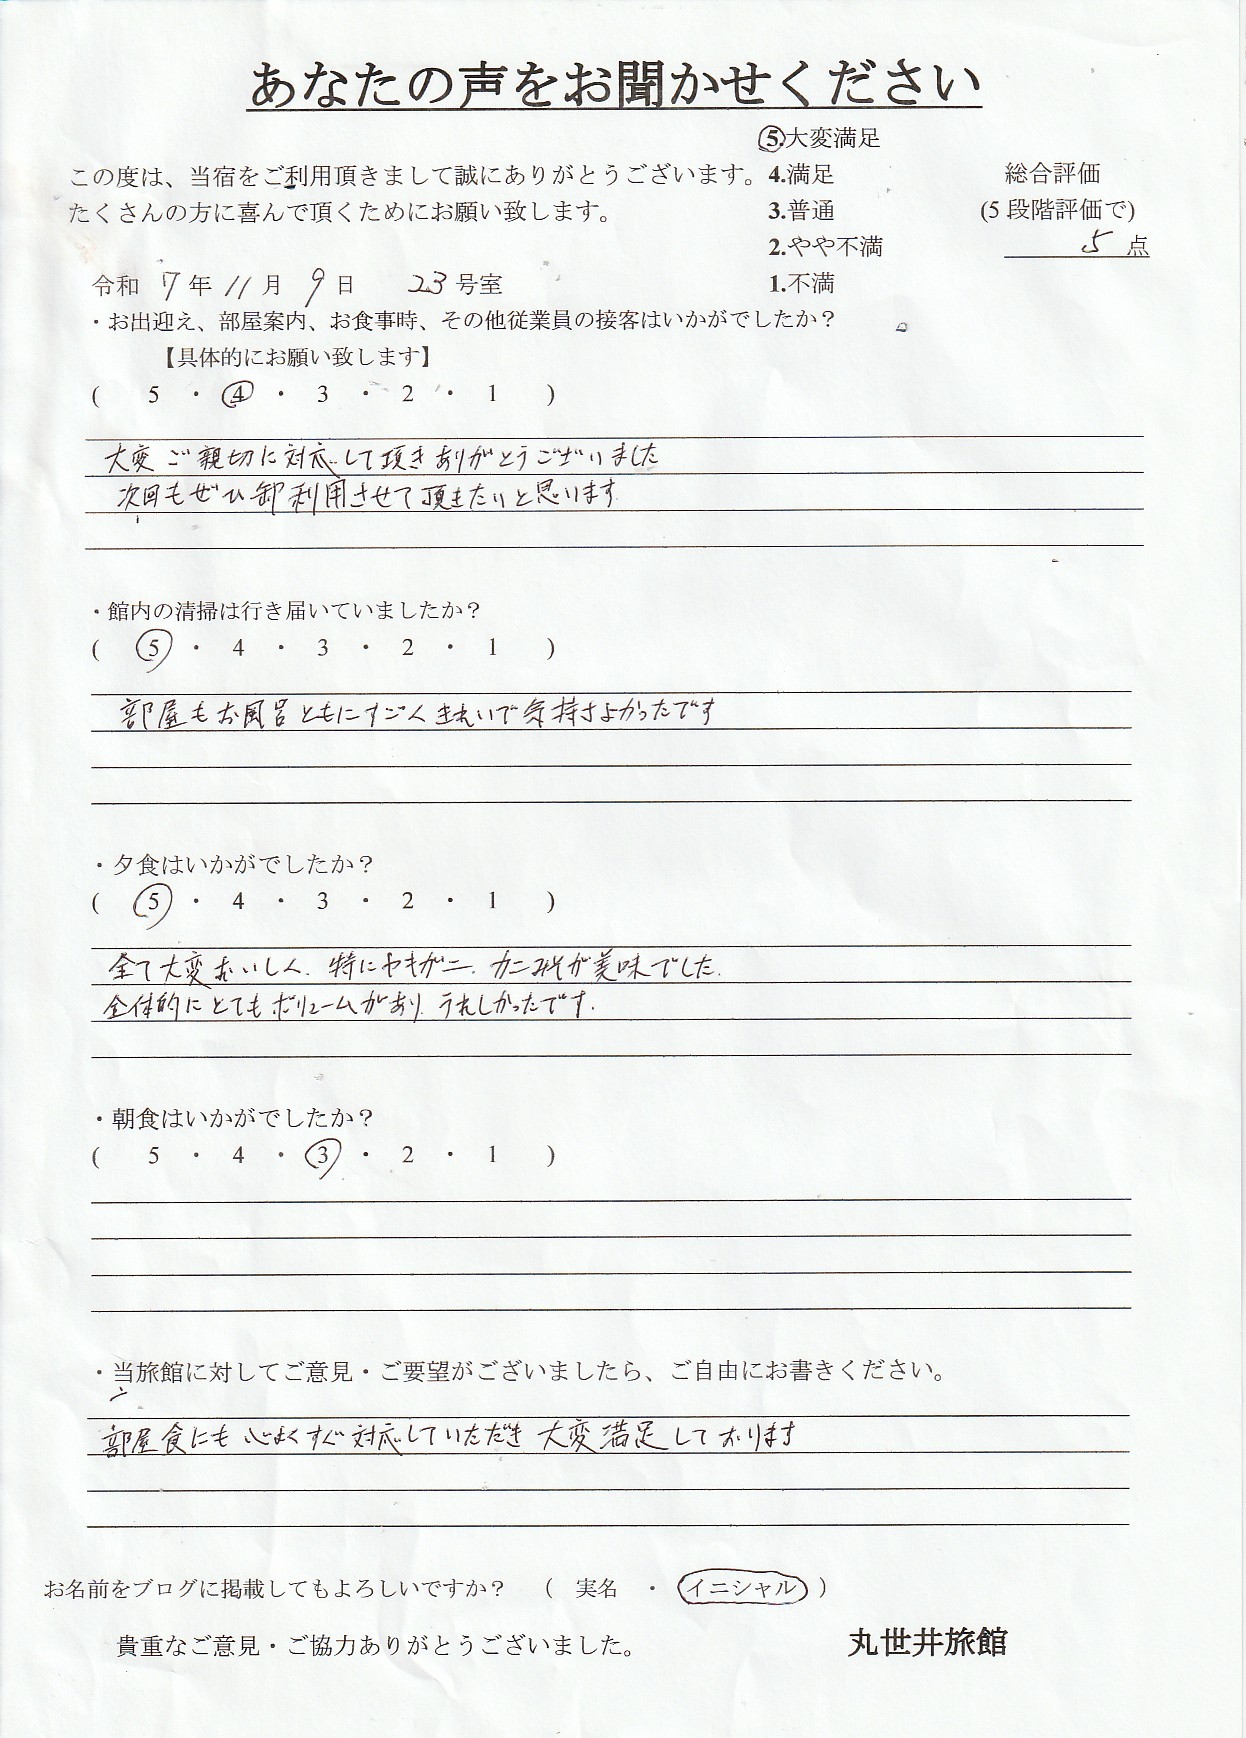 あなたの声をお聞かせください
⑤.大変満足
この度は、当宿をご利用頂きまして誠にありがとうございます。 4.満足 総合評価
たくさんの方に喜んで頂くためにお願い致します。 3.普通 (5 段階評価で)
2.やや不満 5 点
令和 7 年 11 月 9 日 23 号室 1.不満
・お出迎え、部屋案内、お食事時、その他従業員の接客はいかがでしたか？
【具体的にお願い致します】
( 5 ・ ④ ・ 3 ・ 2 ・ 1 )
大変ご親切に対応して頂きありがとうございました
次回もぜひ御利用させて頂きたいと思います
・館内の清掃は行き届いていましたか？
( ⑤ ・ 4 ・ 3 ・ 2 ・ 1 )
部屋もお風呂ともにすごくきれいで気持さよかったです
・夕食はいかがでしたか？
( ⑤ ・ 4 ・ 3 ・ 2 ・ 1 )
全て大変おいしく、特にヤキガニ、カニみそが美味でした。
全体的にとてもボリュームがあり、うれしかったです。
・朝食はいかがでしたか？
( 5 ・ 4 ・ ③ ・ 2 ・ 1 )
・当旅館に対してご意見・ご要望がございましたら、ご自由にお書きください。
部屋食にも心よくすぐ対応していただき 大変満足しております
お名前をブログに掲載してもよろしいですか？ ( 実名 ・ イニシャル )
貴重なご意見・ご協力ありがとうございました。 丸世井旅館